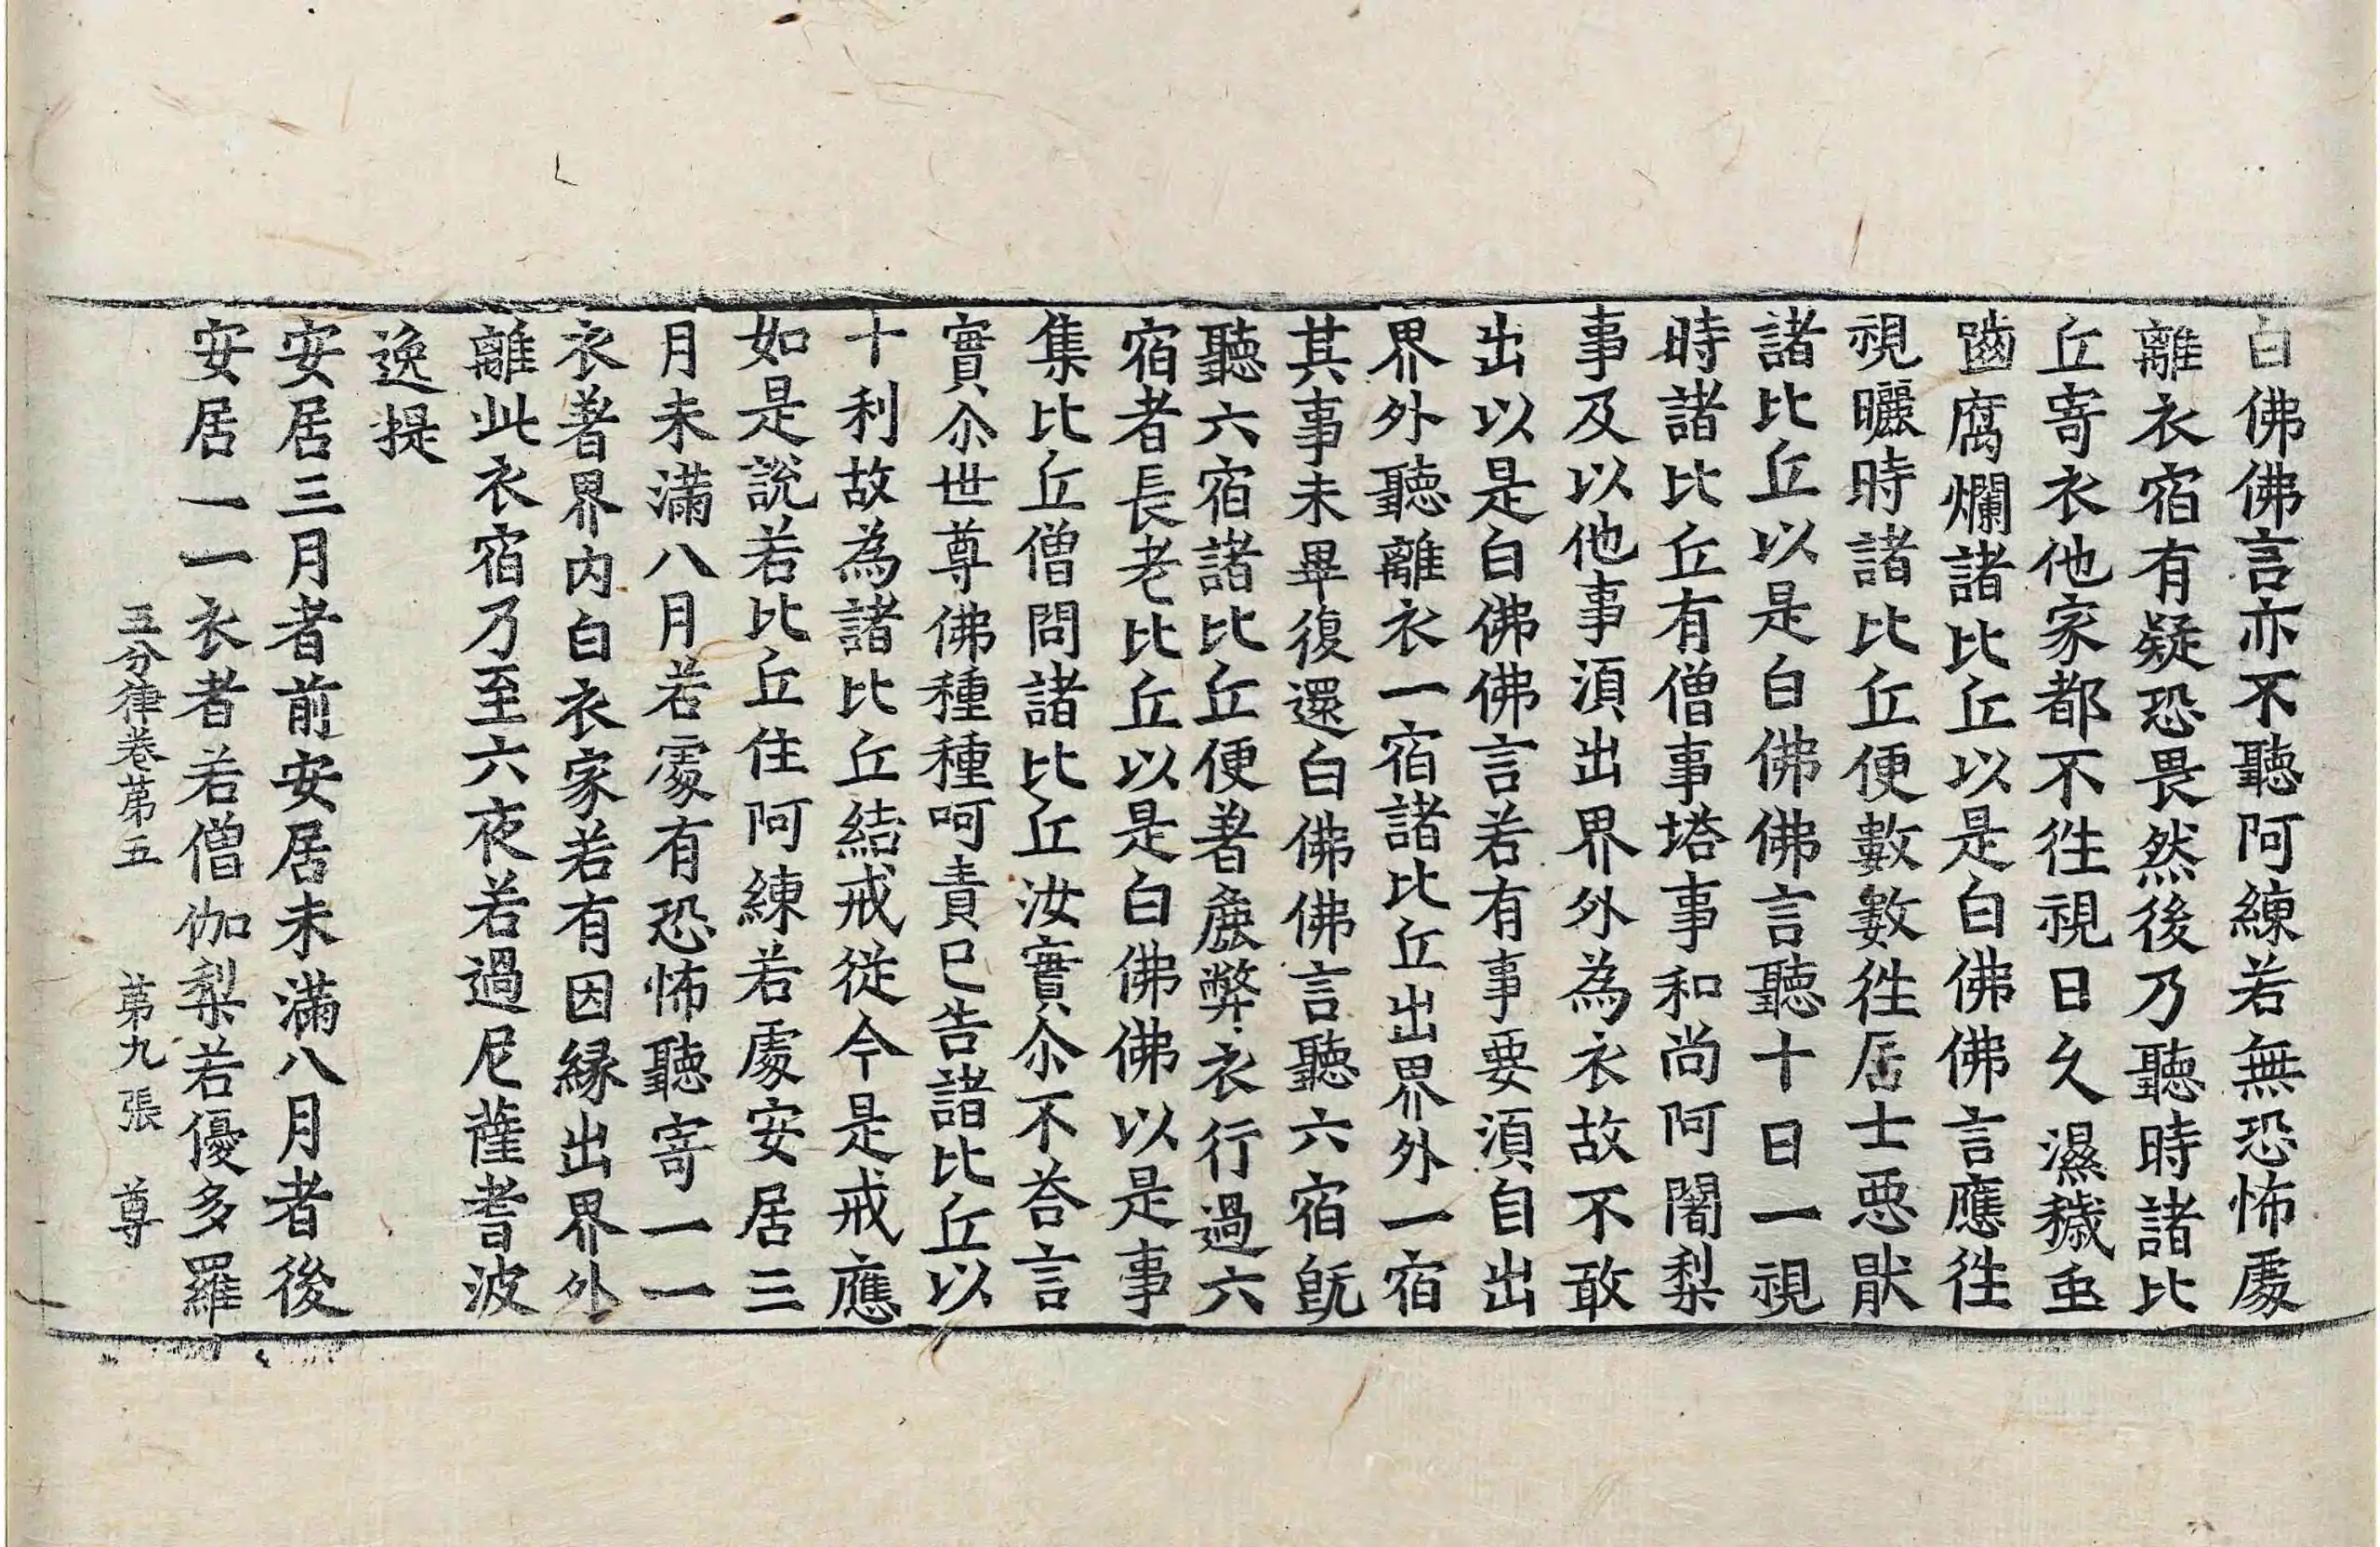 白佛佛言亦不聽阿練若無恐怖處
離衣宿有疑恐畏然後乃聽時諸比
丘寄衣他家都不徃視日久濕穢虫
齒腐爛諸比丘以是白佛佛言應徃
視曬時諸比丘便數數徃居士惡猒
諸比丘以是白佛佛言聽十日一視
時諸比丘有僧事塔事和尚阿闍梨
事及以他事湏出界外為衣故不敢
出以是白佛佛言若有事要湏自出
界外聽離衣一宿諸比丘出界外一宿
其事未畢復還白佛佛言聽六宿旣
聽六宿諸比丘便著麁弊衣行過六
宿者長老比丘以是白佛佛以是事
集比丘僧問諸比丘汝實尒不荅言
實尒世尊佛種種呵責已告諸比丘以
十利故為諸比丘結戒従今是戒應
如是說若比丘住阿練若處安居三
月未滿八月若處有恐怖聽寄一一
衣著界內白衣家若有因縁出界外
離此衣宿乃至六夜若過尼薩耆波
逸提
安居三月者前安居未滿八月者後
安居一一衣者若僧伽梨若優多羅
五分律卷第五 第九張 尊